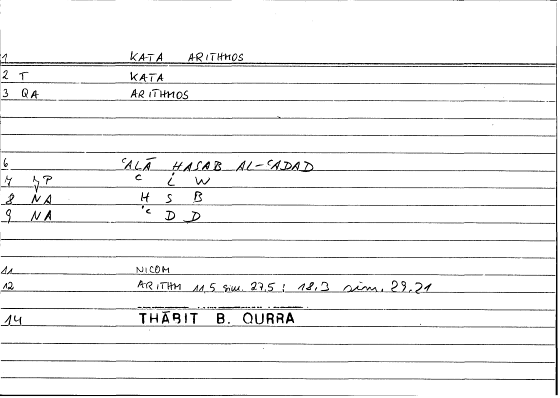 1 KATA ARITHMOS
2 T KATA
3 QA ARITHMOS
6 ᶜALĀ ḤASAB AL-ᶜADAD
7 NP ᶜ L W
8 NA Ḥ S B
9 NA ᶜ D D
11 NICOM
12 ARITHM 11,5 sim. 27,5 ; 18,3 sim. 29,21
14 THĀBIT B. QURRA